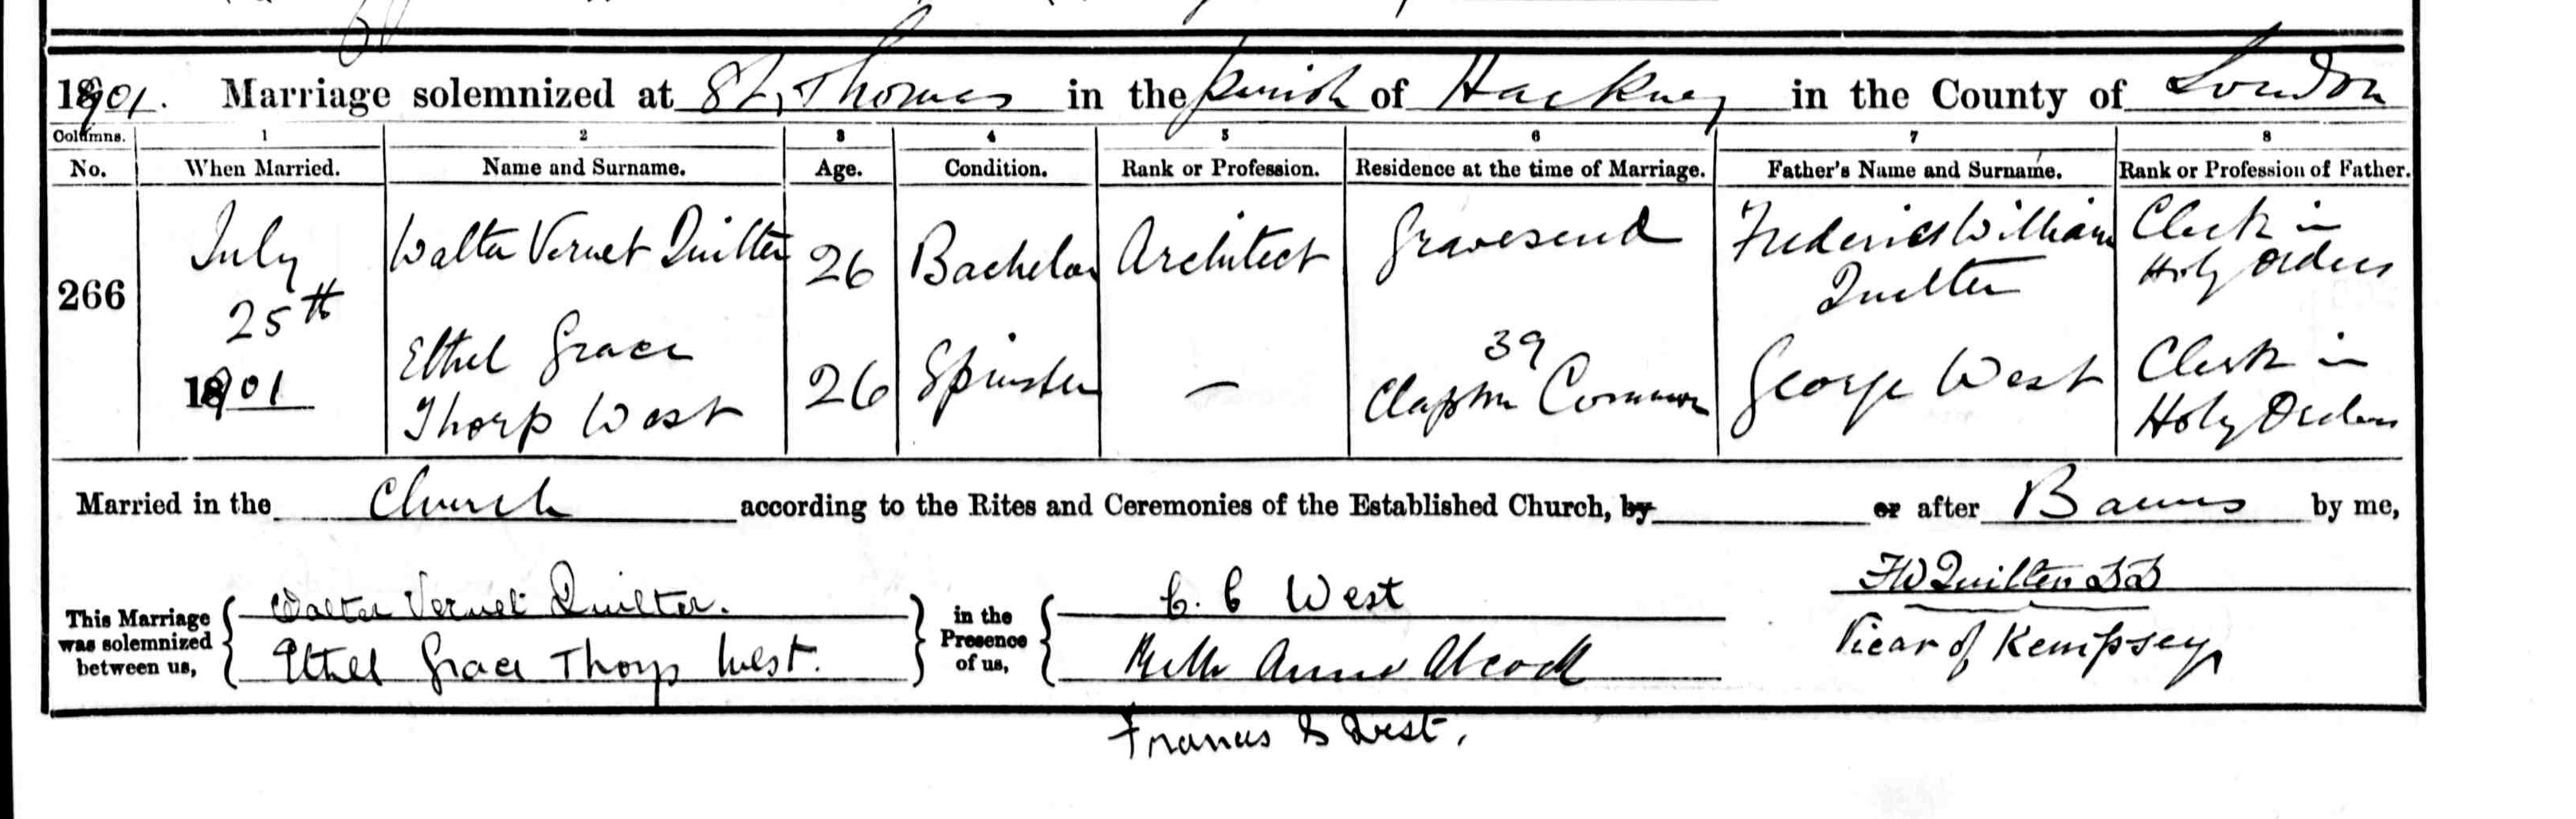 1901. Marriage solemnized at St, Thomas in the parish of Hackney in the County of London
Columns. 1 2 3 4 5 6 7 8
No. When Married. Name and Surname. Age. Condition. Rank or Profession. Residence at the time of Marriage. Father's Name and Surname. Rank or Profession of Father.
266
July
25th
1901
Walter Vernet Quilter
26
Bachelor
Architect
Gravesend
Frederick William
Quilter
Clerk in
Holy Orders
Ethel Grace
Thorp West
26
Spinster
—
39
Clapton Common
George West
Clerk in
Holy Orders
Married in the Church according to the Rites and Ceremonies of the Established Church, by or after Banns by me,
This Marriage
was solemnized
between us,
Walter Vernet Quilter.
Ethel Grace Thorp West.
in the
Presence
of us,
C. C West
Anne Alcock
Francis West.
FW Quilter DD
Vicar of Kempsey